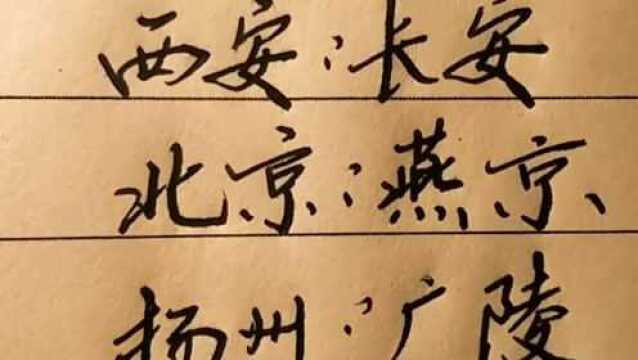 西安:长安
北京:燕京
扬州:广陵